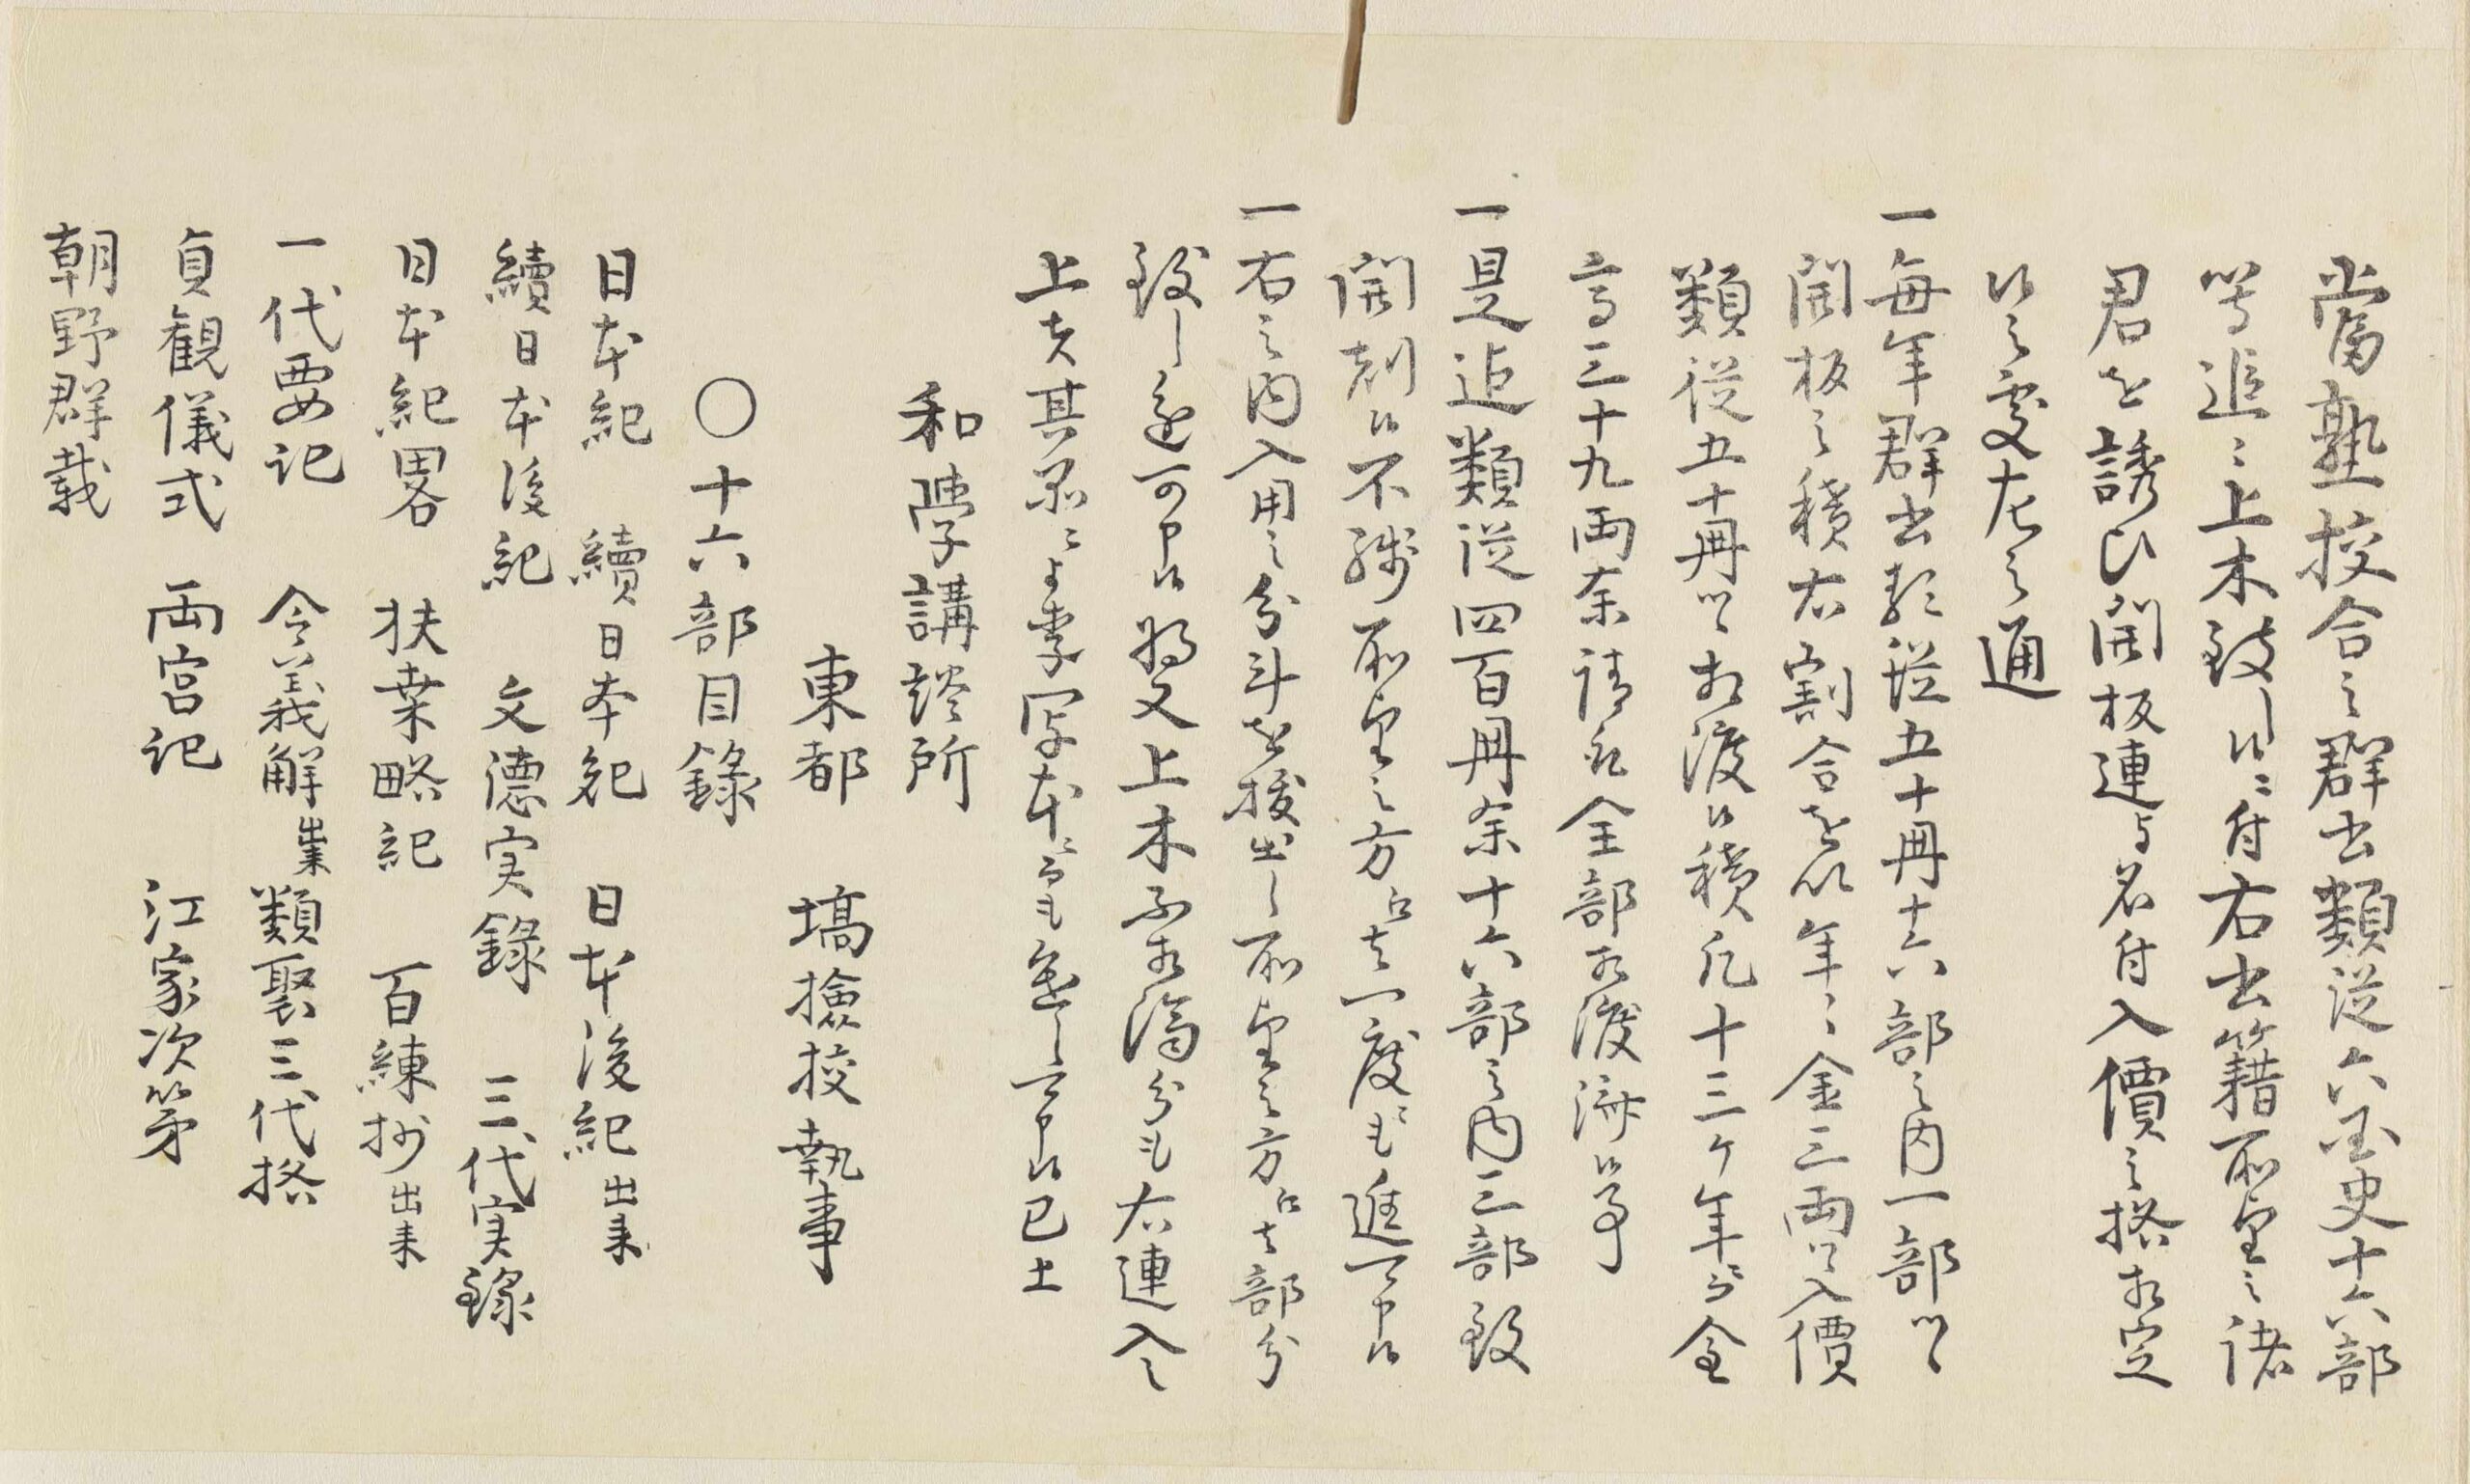 當塾挍合之群書類従六国史十六部
等追々上木致し候ニ付右書籍所望之諸
君を誘ひ開板連与名付入價之格相定
候之處左之通
一毎年群書類従五十冊十六部之内一部ツヽ
開板之積右割合を以年々金三両ツヽ入價
類従五十冊ツヽ相渡候積凡十三ヶ年ニ而金
高三十九両余請取全部相渡済候事
一是迄類従四百冊余十六部之内三部致
開刻候不残所望之方江者一度ニも進可申候
一右之内入用之分斗を抜出し所望之方江者部分
致し進可申候将又上木不相済分も右連入之
上者其品ニよ里写本ニ而も進し可申候已上
和學講談所
東都 塙撿挍執事
〇十六部目錄
日本紀 續日本紀 日本後紀出来
續日本後紀 文德実錄 三代実錄
日本紀畧 扶桒略記 百練抄出来
一代要記 令義解出来 類聚三代格
貞観儀式 両宮記 江家次第
朝野群載